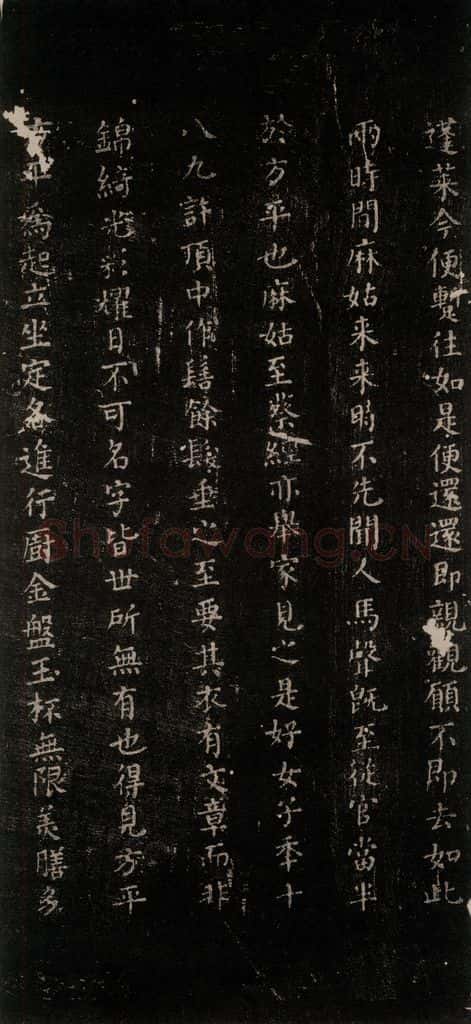 蓬萊今便暫往如是便還還即親觀願不即去如此
兩時間麻姑来来時不先聞人馬聲既至從官當半
於方平也麻姑至蔡經亦舉家見之是好女子年十
八九許頂中作髻餘髮垂之至要其衣有文章而非
錦綺光彩燿日不可名字皆世所無有也得見方平
方平為起立坐定各進行廚金盤玉杯無限美膳多
Shufawang.CN